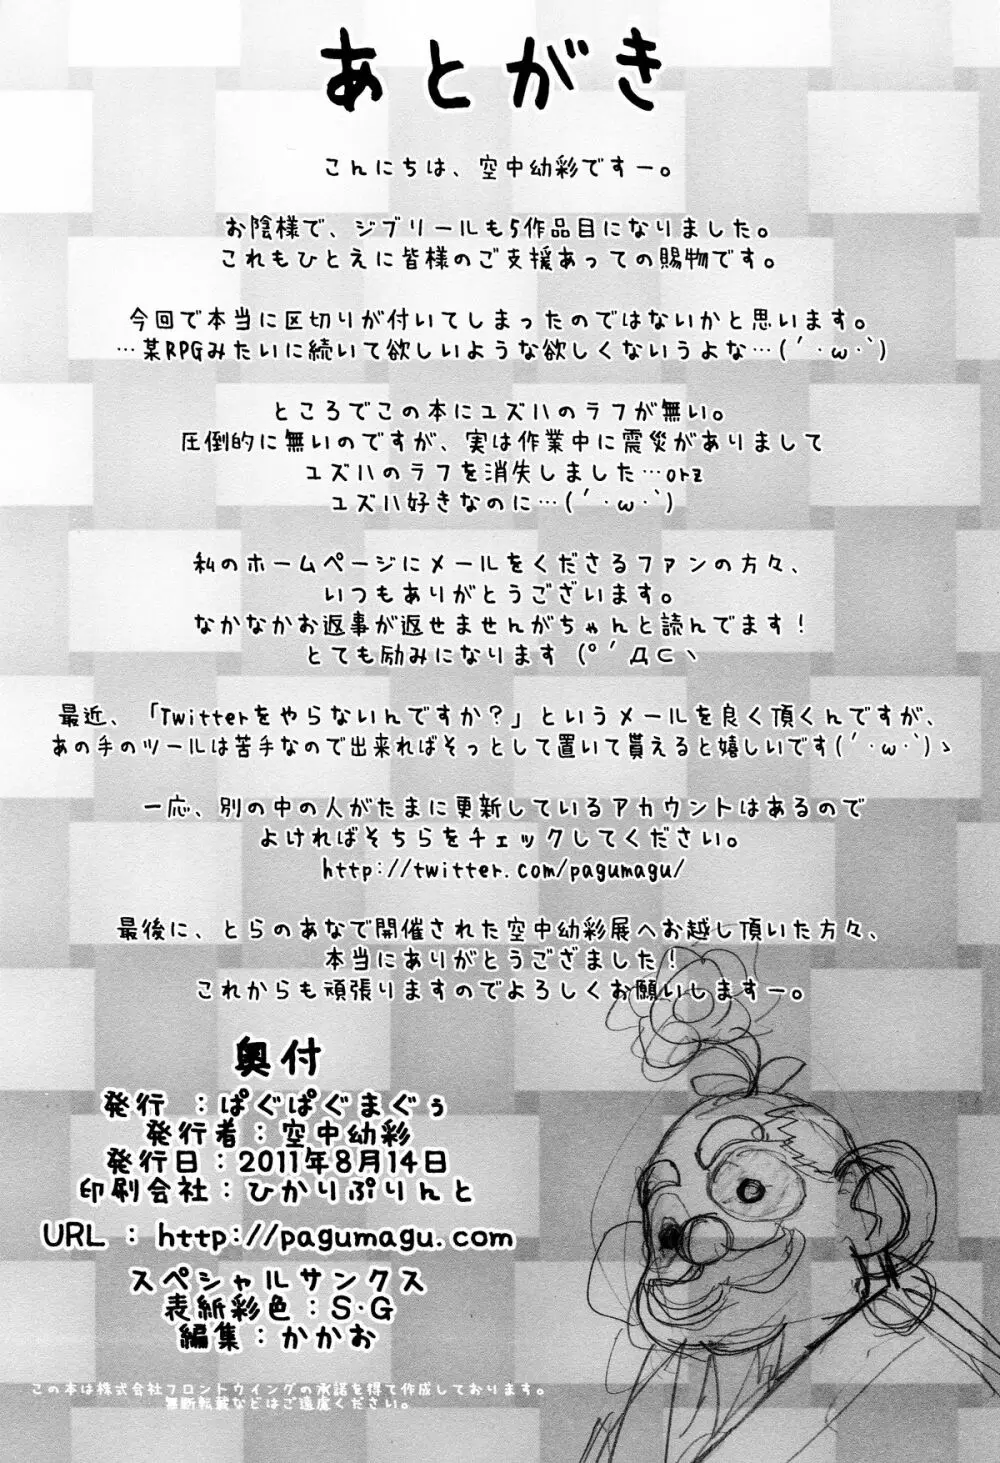 あとがき
こんにちは、空中幼彩ですー。
お陰様で、ジブリールも5作品目になりました。
これもひとえに皆様のご支援あっての賜物です。
今回で本当に区切りが付いてしまったのではないかと思います。
…某RPGみたいに続いて欲しいような欲しくないうよな…(´・ω・`)
ところでこの本にユズハのラフが無い。
圧倒的に無いのですが、実は作業中に震災がありまして
ユズハのラフを消失しました…orz
ユズハ好きなのに…(´・ω・`)
私のホームページにメールをくださるファンの方々、
いつもありがとうございます。
なかなかお返事が返せませんがちゃんと読んでます！
とても励みになります (°´Д⊂ヽ
最近、「Twitterをやらないんですか？」というメールを良く頂くんですが、
あの手のツールは苦手なので出来ればそっとして置いて貰えると嬉しいです(´・ω・`)ゝ
一応、別の中の人がたまに更新しているアカウントはあるので
よければそちらをチェックしてください。
http://twitter.com/pagumagu/
最後に、とらのあなで開催された空中幼彩展へお越し頂いた方々、
本当にありがとうござました！
これからも頑張りますのでよろしくお願いしますー。
奥付
発行 ：ぱぐぱぐまぐぅ
発行者：空中幼彩
発行日：2011年8月14日
印刷会社：ひかりぷりんと
URL ： http://pagumagu.com
スペシャルサンクス
表紙彩色：S・G
編集：かかお
この本は株式会社フロントウイングの承諾を得て作成しております。
無断転載などはご遠慮ください。